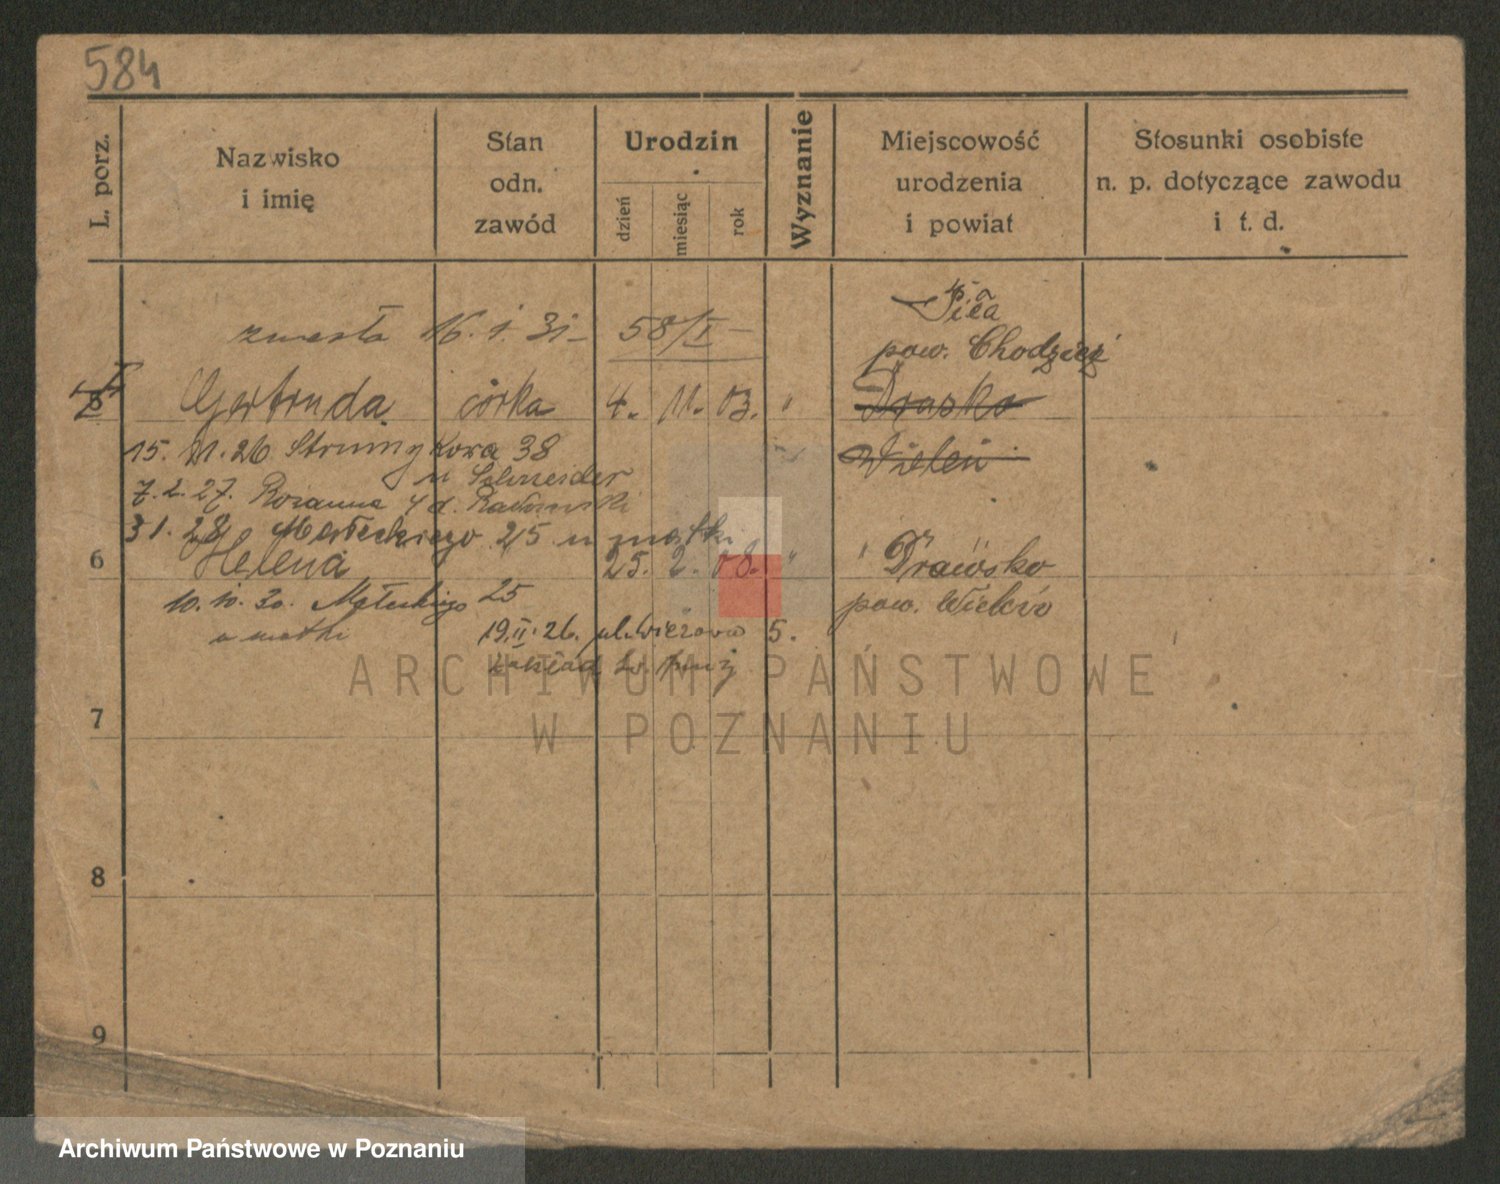 584
L. porz.
Nazwisko
i imię
Stan
odn.
zawód
Urodzin
dzień
miesiąc
rok
Wyznanie
Miejscowość
urodzenia
i powiat
Stosunki osobiste
n. p. dotyczące zawodu
i t. d.
zmarła 16. 1. 31 - 58/I -
Piła
pow. Chodzież
5 Gertruda córka 4. 11. 03. " Drasko
15. 11. 26 Strumykowa 38 Wieleń
u Schneider
7. 2. 27. Rózanna 4 d. Radomski
3 1. 28 Małeckiego 25 u matki
6 Helena 25. 2. 08. " " Drawsko
10. 10. 30. Małeckiego 25 pow. Wieleń
u matki 19.II.26. ul. Wieżowa 5.
zakład
ARCHIWUM PAŃSTWOWE
W POZNANIU
7
8
9
Archiwum Państwowe w Poznaniu